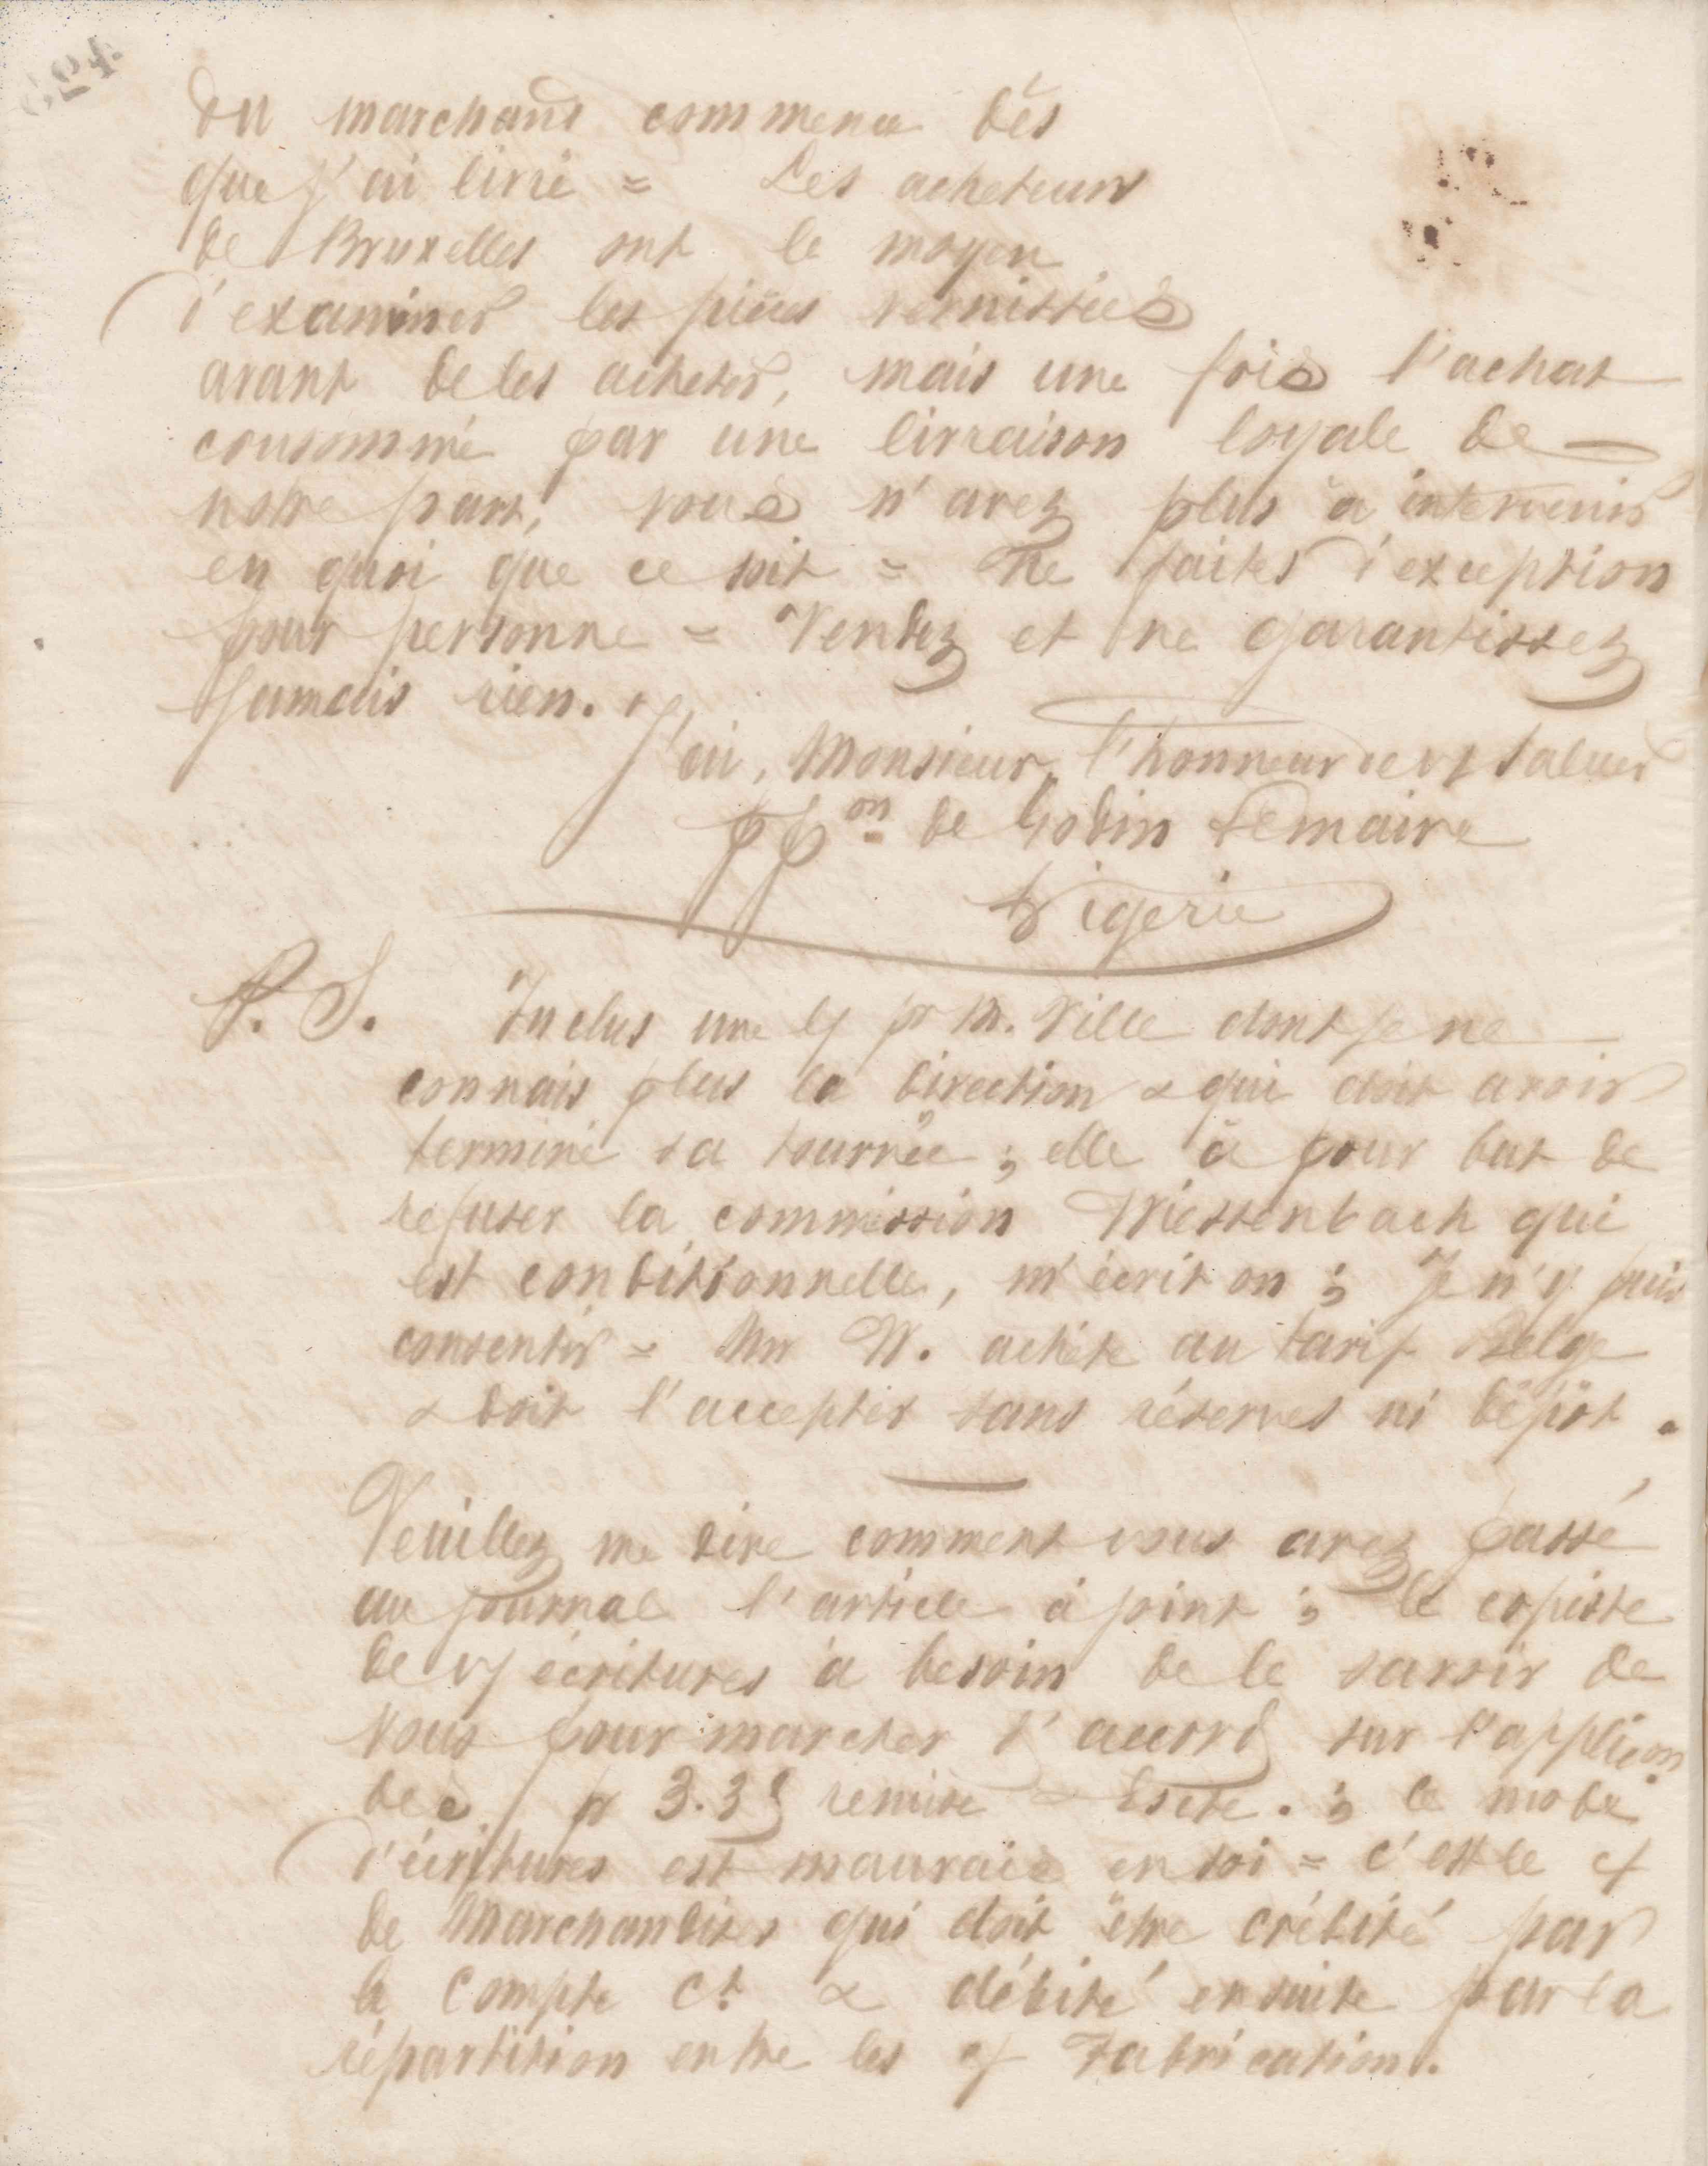 du marchand commence dès
que j'ai livré = Les acheteurs
de Bruxelles ont le moyen
d'examiner les pièces vernissées
avant de les acheter, mais une fois l'achat
consommé par une livraison loyale de
notre part, vous n'avez plus à intervenir
en quoi que ce soit = Ne faites d'exception
pour personne = Vendez et ne garantissez
jamais rien.
J'ai, Monsieur, l'honneur de vs saluer
ppon de Godin Lemaire
Rigerie
P. S. Inclus une l/ pr M. Ville dont je ne
connais plus la direction & qui doit avoir
terminé sa tournée ; elle à pour but de
refuser la commission Wiessenbach qui
est conditionnelle, m'écrit on ; Je n'y puis
consentir = Mr W. achète au tarif Belge
& doit l'accepter sans réserves ni dépôt.
Veuillez me dire comment vous avez passé
au journal l'article à joint ; le copiste
de v/ écritures à besoin de le savoir de
vous pour marcher d'accord sur l'applicon
des pr 3.35 remise & Escte. ; le mode
d'écritures est mauvais en soi = c'est le c/
de Marchandises qui doit être crédité par
le Compte Ct & débité ensuite par la
répartition entre les c/ Fabrication.